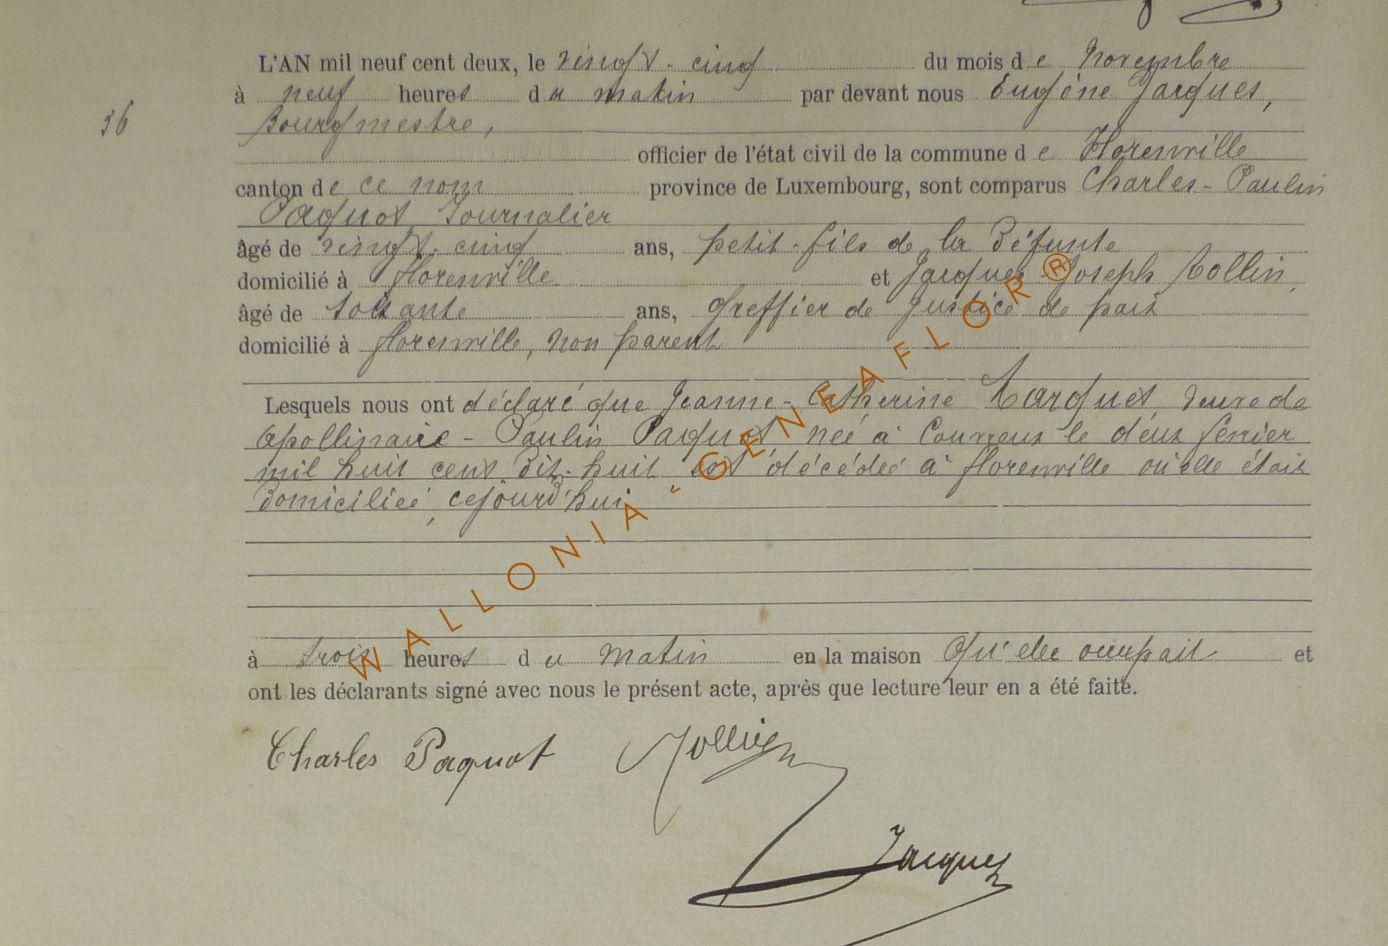 L'AN mil neuf cent deux, le vingt-cinq du mois de Novembre
à neuf heures du matin par devant nous Eugène Jacques,
36
Bourgmestre,
officier de l'état civil de la commune de Florenville
canton de ce nom province de Luxembourg, sont comparus Charles-Paulin
Paquot Journalier
âgé de vingt-cinq ans, petit-fils de la Défunte
domicilié à florenville et Jacques Joseph
âgé de soixante ans, Greffier de Justice de paix
domicilié à florenville, non parent
Lesquels nous ont déclaré que Jeanne-Catherine veuve de
Apollinaire-Paulin Paquot, née à le deux février
mil huit cent Dix-huit est décédée à florenville où elle était
Domiciliée, cejourd'hui
à trois heures du matin en la maison qu'elle occupait et
ont les déclarants signé avec nous le présent acte, après que lecture leur en a été faite.
Charles Paquot
Jacques
WALLONIA - GENEAFLOR®